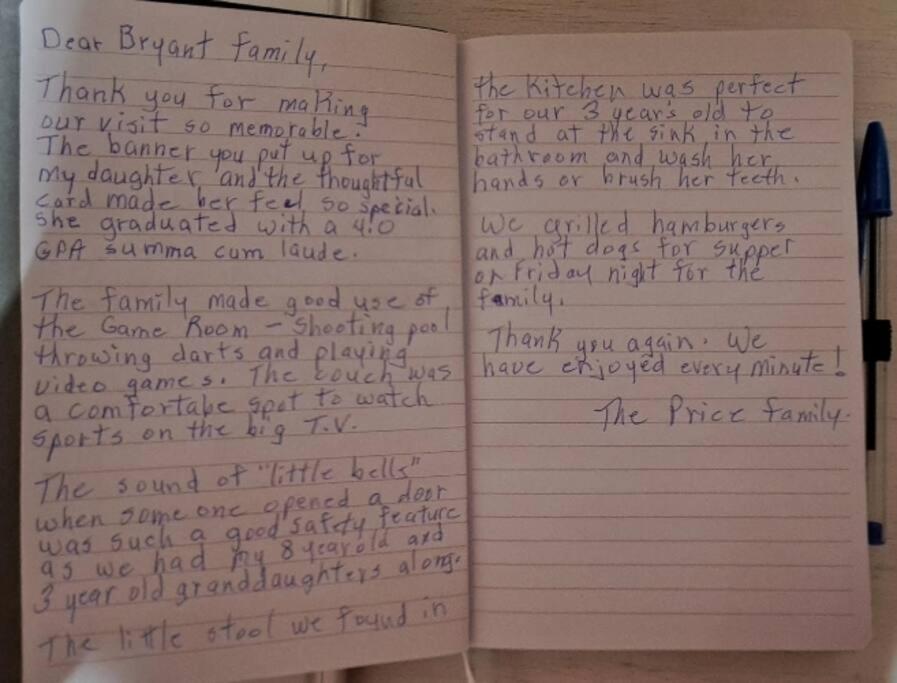 Dear Bryant family,
Thank you for making
our visit so memorable.
The banner you put up for
my daughter and the thoughtful
card made her feel so special.
She graduated with a 4.0
GPA summa cum laude.
The family made good use of
the Game Room - Shooting pool
throwing darts and playing
video games. The couch was
a comfortabe spot to watch
sports on the big T.V.
The sound of "little bells"
when some one opened a door
was such a good safety feature
as we had my 8 year old and
3 year old granddaughters along.
The little stool we found in
the kitchen was perfect
for our 3 year's old to
stand at the sink in the
bathroom and wash her
hands or brush her teeth.
We grilled hamburgers
and hot dogs for supper
on Friday night for the
family.
Thank you again. We
have enjoyed every minute!
The Price family.